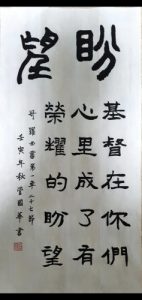 盼望
基督在你們
心里成了有
榮耀的盼望
哥羅西書第一章二十七節
壬寅年秋 國華書